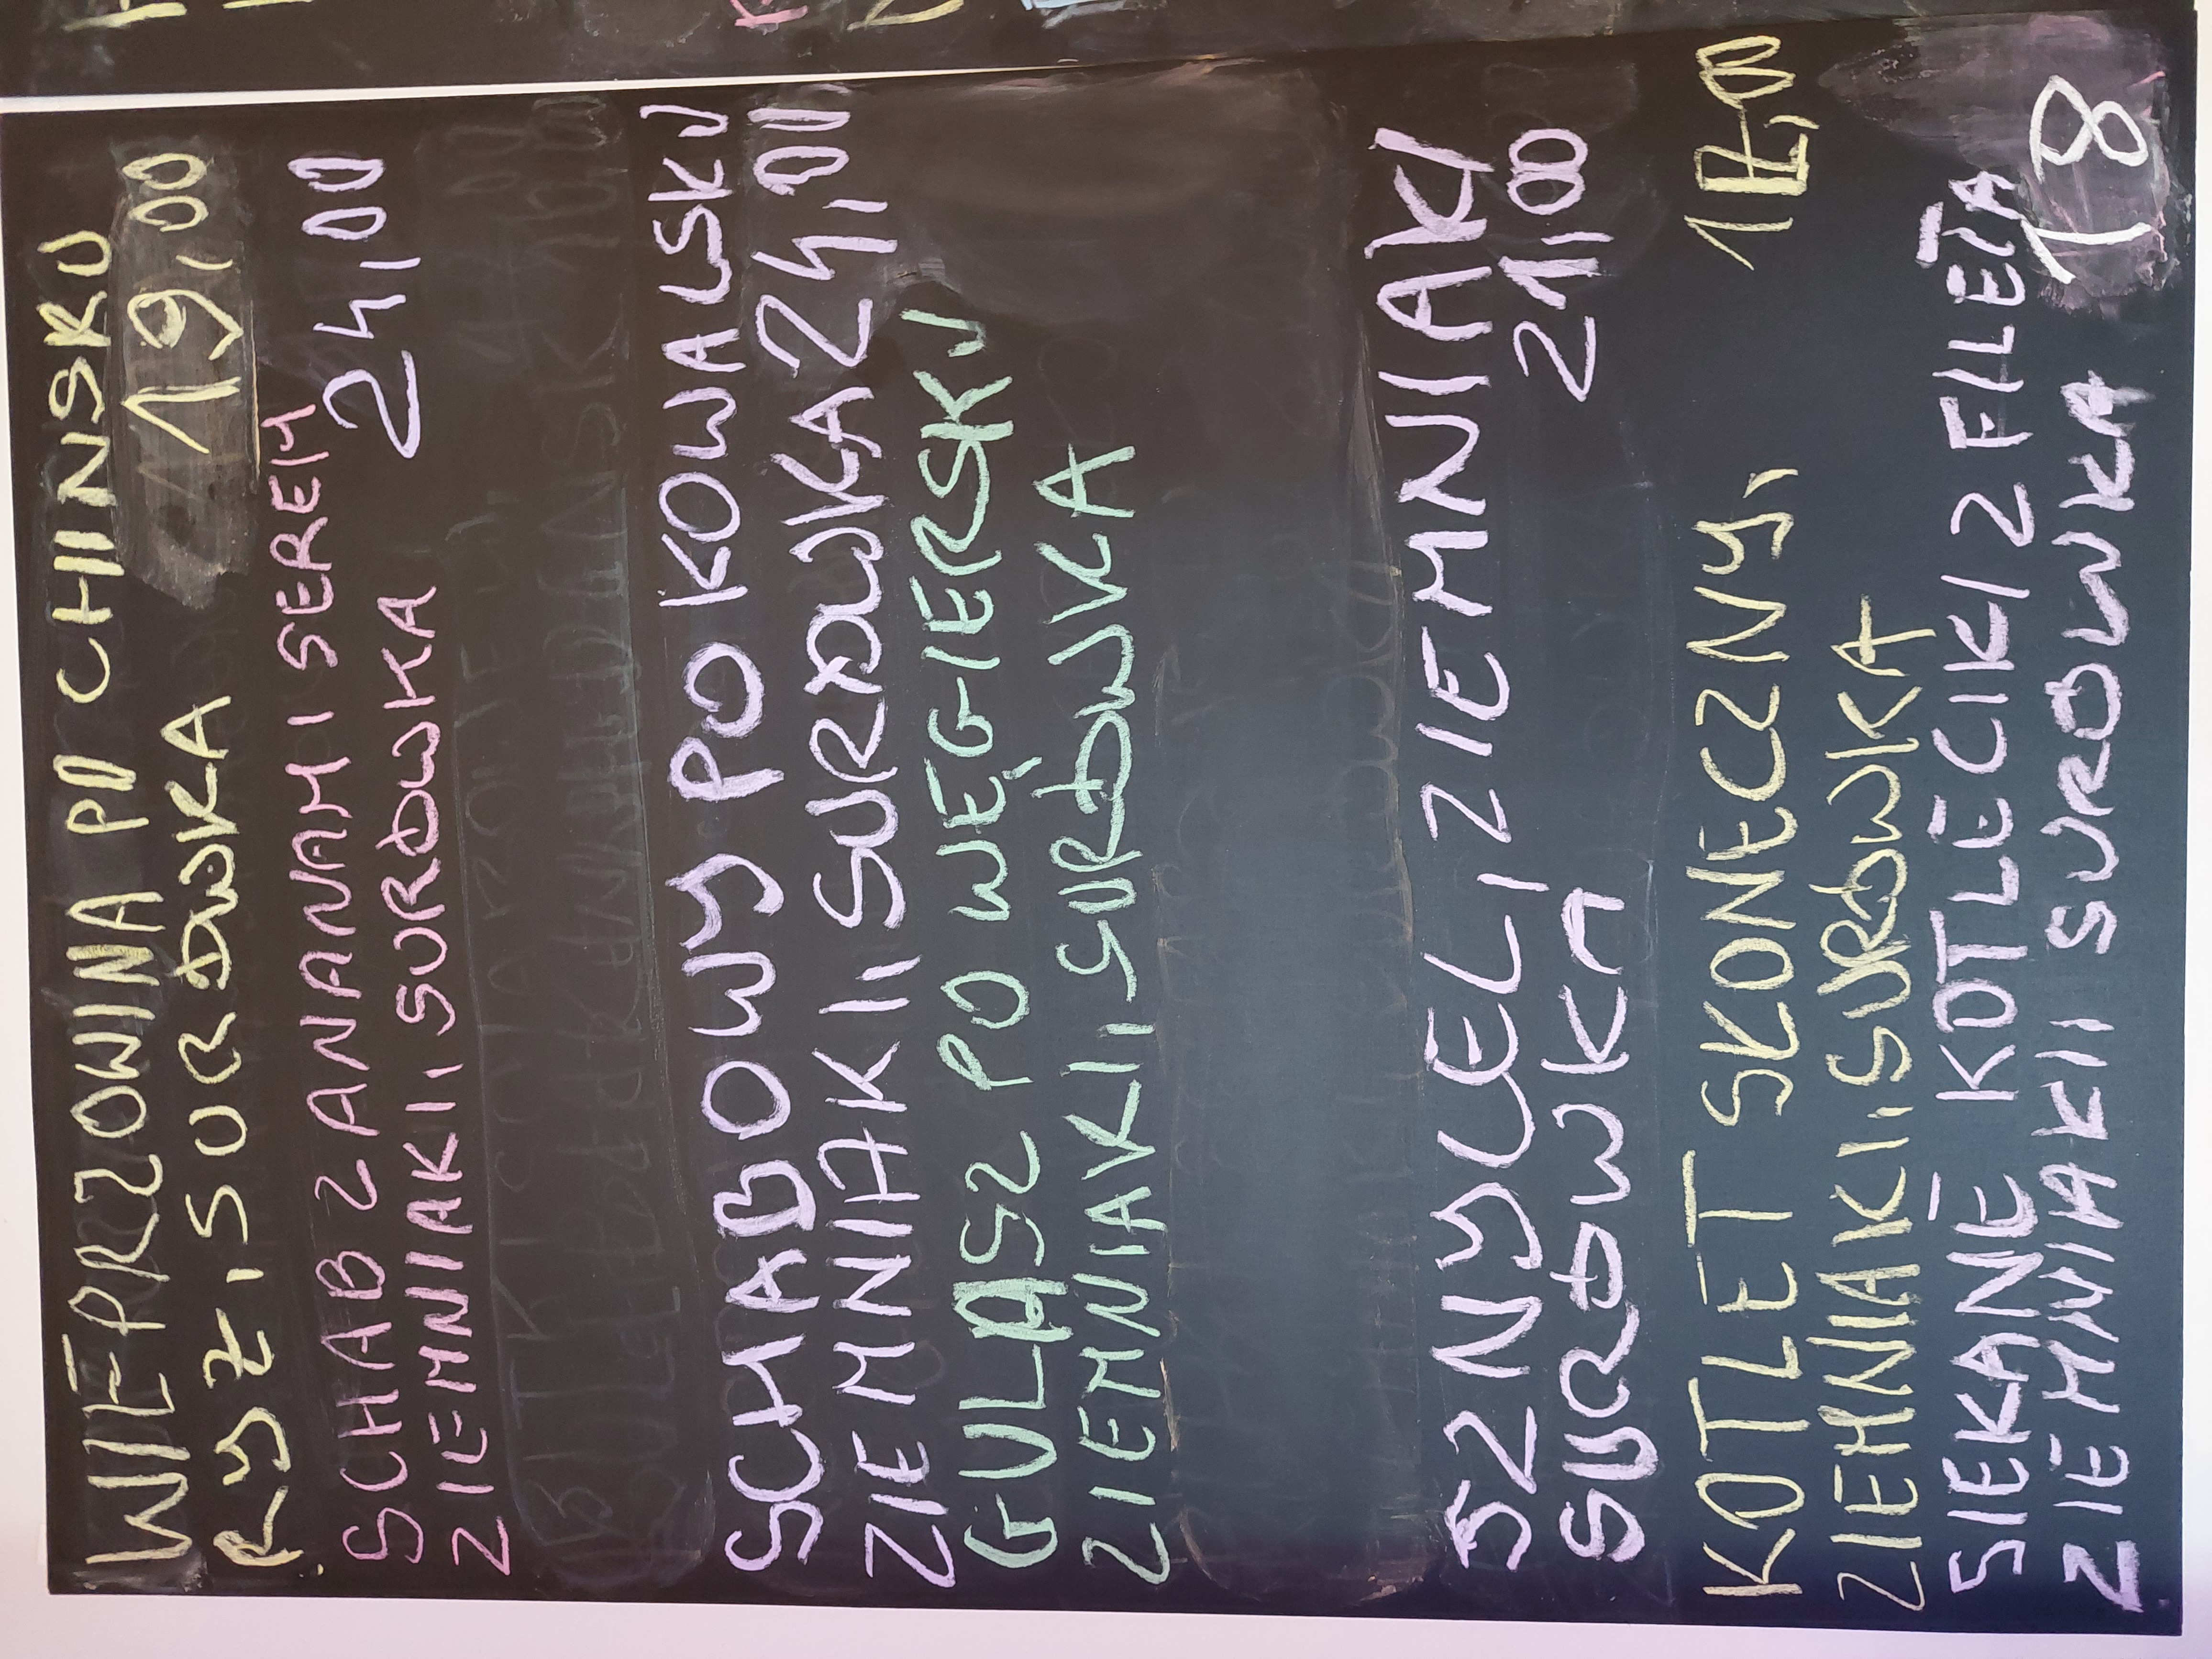 WIEPRZOWINA PO CHINSKU
RYZ, SURÓWKA 19,00
SCHAB Z ANANAM I SEREM
ZIEMNIAKI, SURÓWKA 24,00
SCHABOWY PO KOWALSKU
ZIEMNIAKI, SURÓWKA 24,00
GULASZ PO WĘGIERSKU
ZIEMNIAKI, SURÓWKA
SZNYCEL, ZIEMNIAKI
SURÓWKA 21,00
KOTLET SKONECZNY,
ZIEMNIAKI, SURÓWKA
SIEKANE KOTLECIKI Z FILEŃA
ZIEMNIAKI I SUROWKA 18